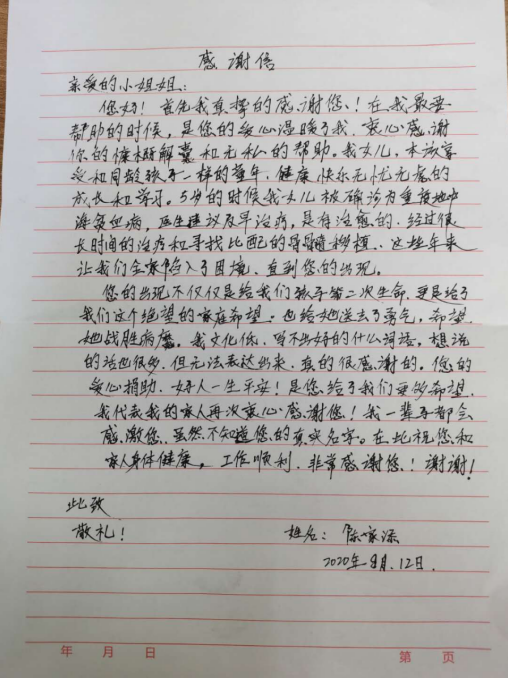 感谢信
亲爱的小姐姐:
您好!首先我真挚的感谢您!在我最需
帮助的时候,是您的爱心温暖了我.衷心感谢
你的慷慨解囊和无私的帮助。我女儿,本该享
受和同龄孩子一样的童年.健康快乐无忧无虑的
成长和学习。5岁的时候我女儿被确诊为重度地中
海贫血病,医生建议及早治疗,是有治愈的.经过很
长时间的治疗和寻找比配的骨髓移植.这些年来
让我们全家陷入了困境.直到您的出现。
您的出现不仅仅是给我们孩子第二次生命.更是给了
我们这个绝望的家庭希望.也给她送去了勇气,希望
她战胜病魔.我文化低.写不出好的什么词语.想说
的话也很多.但无法表达出来.真的很感谢的.您的
爱心捐助.好人一生平安!是您给了我们更多希望.
我代表我的家人再次衷心感谢您!我一辈子都会
感激您.虽然不知道您的真实名字。在此祝您和
家人身体健康。工作顺利.非常感谢您!谢谢!
此致
敬礼!
姓名:陈家添
2020年8月.12日.
年 月 日
第 页